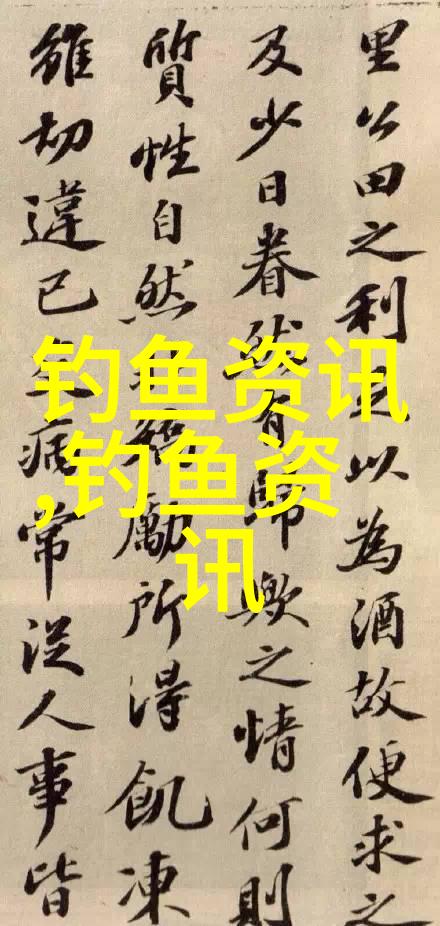 里公田之利足以為酒故便求之
及少日眷然有歸歟之情何則
質性自然矯勵所得飢凍
雖切違己交病常從人事皆
钓鱼资讯
,钓鱼资
讯